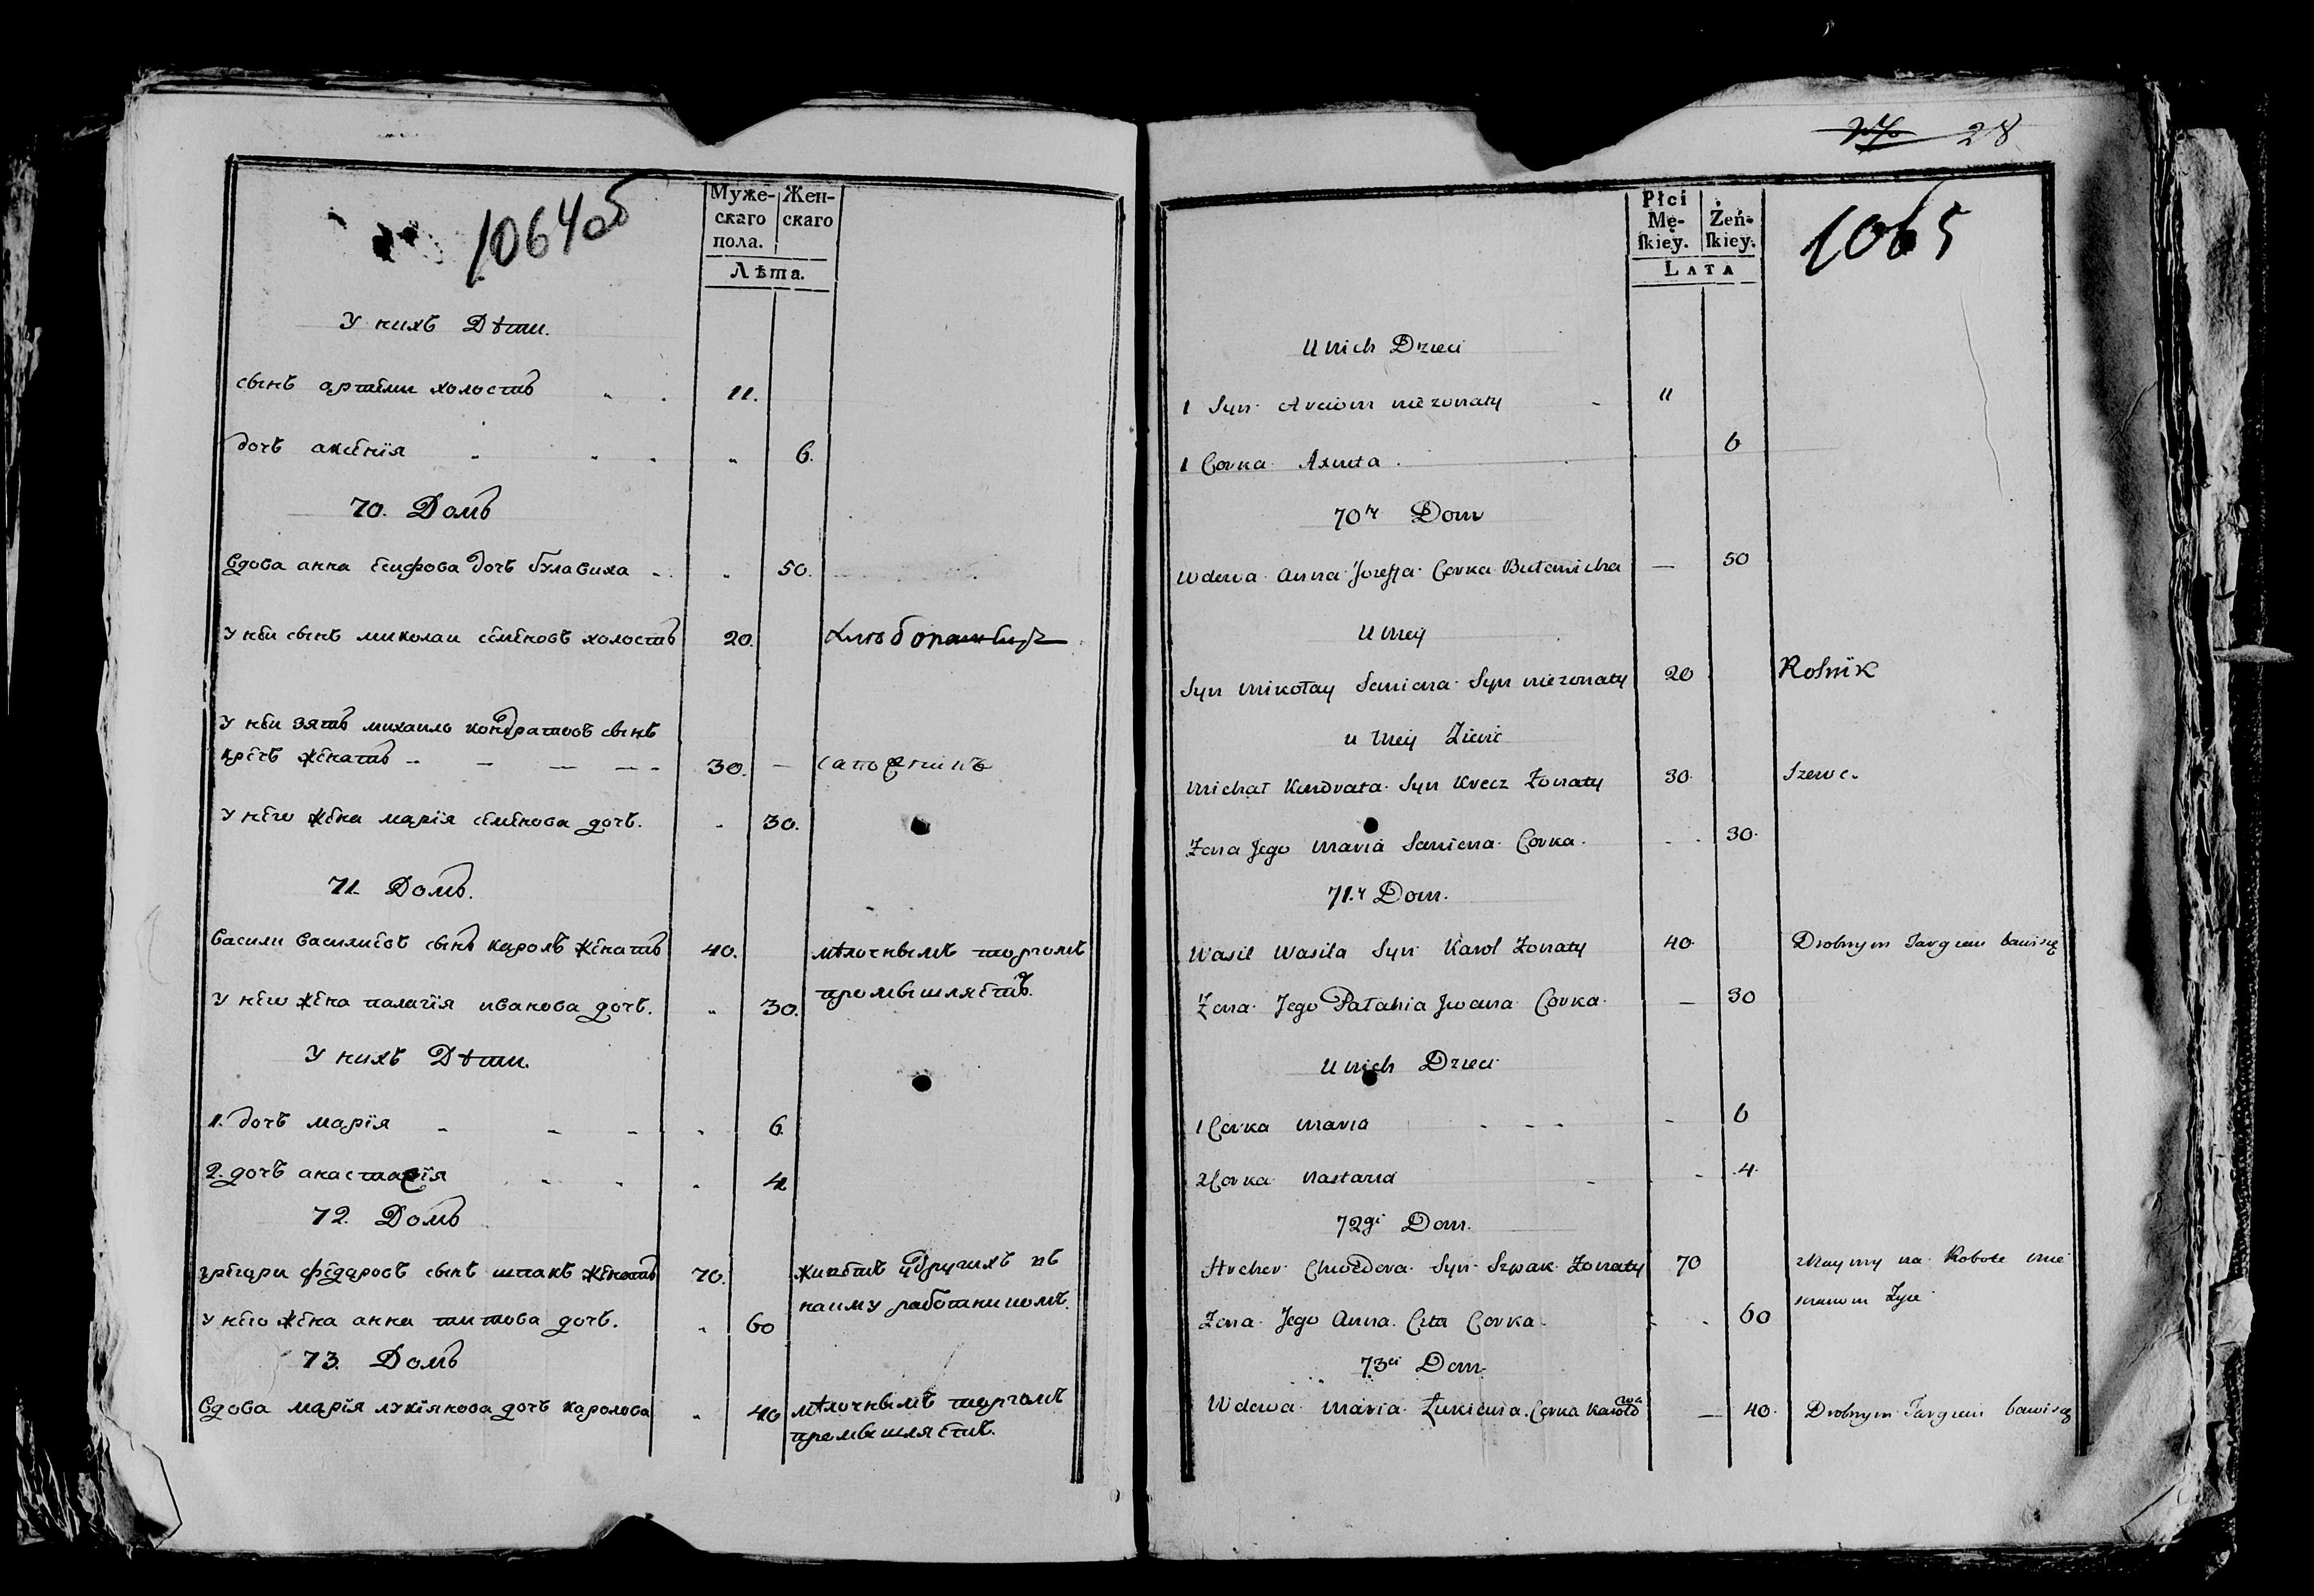 1064об
Муже- Жен-
скаго скаго
пола.
Лѣта.
У нихъ Дѣти.
сынъ артеми холостъ 11.
дочь аксенїя 6.
70. Домъ
Вдова анна есифова дочь булавиха 50.
У неи сынъ миколаи семеновъ холостъ 20.
У неи зять михаилъ кондратовъ сынъ
кречъ женатъ 30. сапожникъ
У него жена марїя семенова дочь. 30.
71. Домъ.
Васили василиевъ сынъ кароль женатъ 40. мѣлочнымъ торгомъ
У него жена палагїя иванова дочь. 30. промышляетъ.
У нихъ Дѣти.
1. дочь марїя 6.
2. дочь анастасїя 4
72. Домъ
григори федоровъ сынъ шпакъ женатъ 70. живетъ удругихъ въ
У него жена анна титова дочь. 60 наиму работникомъ.
73. Домъ
Вдова марїя лукїянова дочь каролова 40 мѣлочнымъ торгомъ
промышляетъ.
27 28
Płci
Mę- Żeń-
ſkiey. ſkiey.
LATA
1065
U nich Dzieci
1 Syn Arciom niezonaty 11
1 Corka Axinia 6
70ty Dom
Wdowa Anna Jozeffa Corka Buławicha — 50
U niey
Syn Mikołay Semiena Syn niezonaty 20 Rolnik
u niey Zięć
Michał Kondrata Syn Krecz Żonaty 30 Szewc.
Żona Jego Maria Semiena Corka 30
71.y Dom.
Wasil Wasila Syn Karol Żonaty 40 Drobnym Targiem bawi się
Żona Jego Pałahia Jwana Corka — 30
U nich Dzieci
1 Corka Maria 6
2 Corka Nastazia 4
72gi Dom.
Chwedora Syn Szpak Żonaty 70 na Robote
Żona Jego Anna Corka 60
73ci Dom
Wdowa Maria Łukiena Corka Karolowa — 40 Drobnym Targiem bawi się